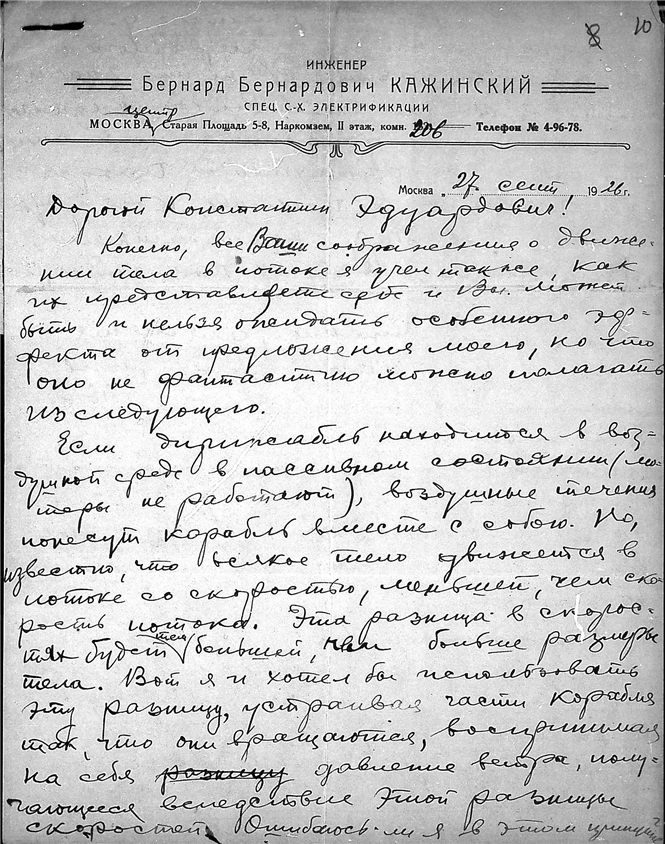 8 10
ИНЖЕНЕР
Бернард Бернардович КАЖИНСКИЙ
СПЕЦ. С.-Х. ЭЛЕКТРИФИКАЦИИ
центр
МОСКВА, Старая Площадь 5-8, Наркомзем, II этаж, комн. 206 Телефон № 4-96-78.
Москва „27" сент 1926 г.
Дорогой Константин Эдуардович!
Конечно, все Ваши соображения о движе-
нии тела в потоке я учел также, как
их представляете себе и Вы. Может
быть и нельзя ожидать особенного эф-
фекта от предложения моего, но что
оно не фантастично можно полагать
из следующего.
Если дирижабль находится в воз-
душной среде в пассивном состоянии (мо-
торы не работают), воздушные течения
понесут корабль вместе с собою. Но,
известно, что всякое тело движется в
потоке со скоростью, меньшей, чем ско-
рость потока. Эта разница в скорос-
тях будет тем большей, чем больше размеры
тела. Вот я и хотел бы использовать
эту разницу, устраивая части корабля
так, что они вращаются, воспринимая
на себя разницу давление ветра, полу-
чающееся вследствие этой разницы
скоростей. Ошибаюсь-ли я в этом